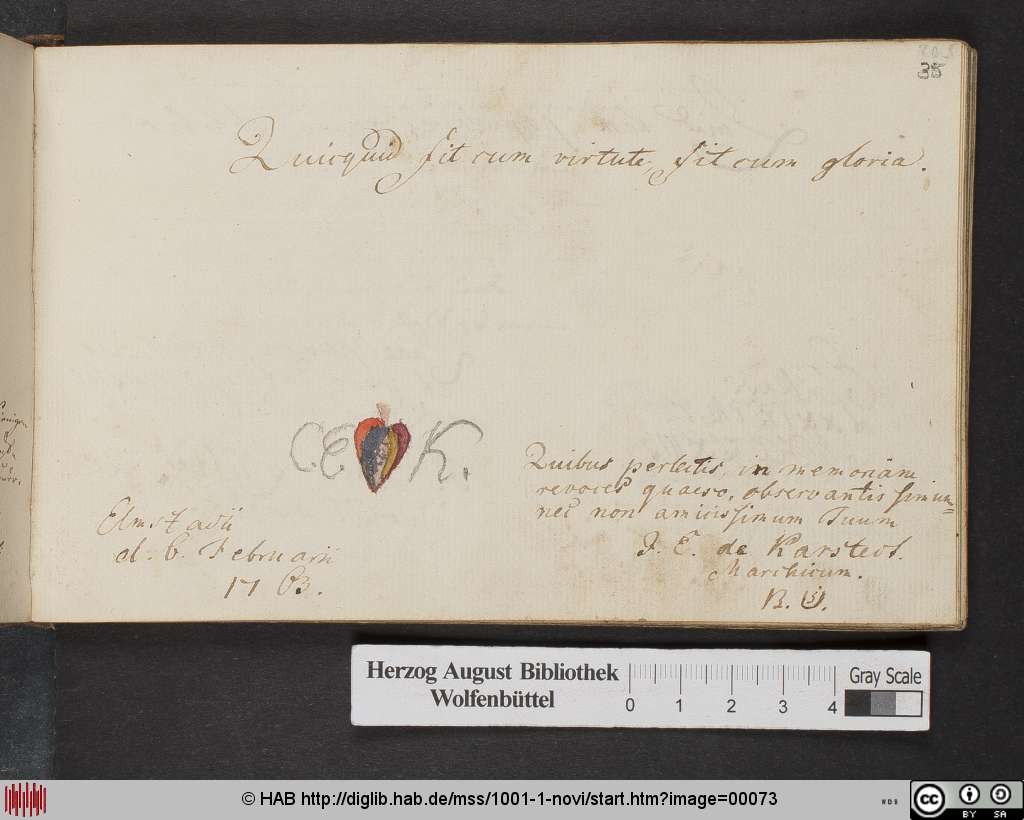 35
Quicquid fit cum virtute, fit cum gloria.
C E K.
Quibus perlectis, in memoriam
revoces quaeso, observantissimum
nec non amicissimum Tuum
J. E. de Karstedt.
Marchicum.
Elmstadii
d. 6. Februarii
1763.
Herzog August Bibliothek
Wolfenbüttel
0 1 2 3 4
Gray Scale
© HAB http://diglib.hab.de/mss/1001-1-novi/start.htm?image=00073
cc BY SA